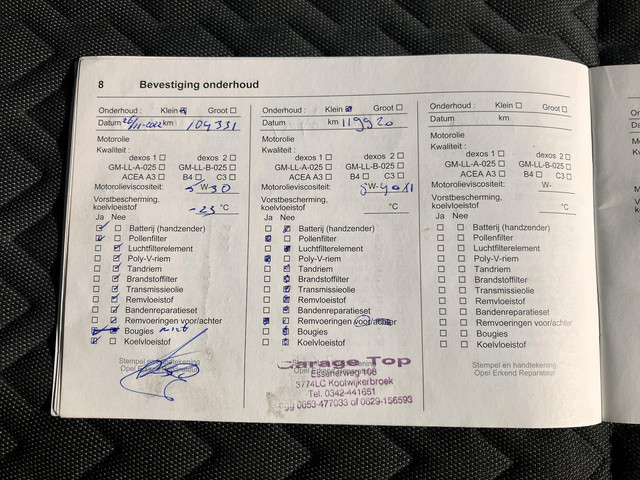 8 Bevestiging onderhoud
Onderhoud : Klein Groot
Datum 26/11-2022 km 104331
Motorolie
Kwaliteit :
dexos 1 dexos 2
GM-LL-A-025 GM-LL-B-025
ACEA A3 B4 C3
Motorolieviscositeit: 5 W- 30
Vorstbescherming,
koelvloeistof -23 °C
Ja Nee
Batterij (handzender)
Pollenfilter
Luchtfilterelement
Poly-V-riem
Tandriem
Brandstoffilter
Transmissieolie
Remvloeistof
Bandenreparatieset
Remvoeringen voor/achter
Bougies niet
Koelvloeistof
Stempel en handtekening
Opel Erkend Reparateur
Onderhoud : Klein Groot
Datum km 119920
Motorolie
Kwaliteit :
dexos 1 dexos 2
GM-LL-A-025 GM-LL-B-025
ACEA A3 B4 C3
Motorolieviscositeit: 5W-40
Vorstbescherming,
koelvloeistof °C
Ja Nee
Batterij (handzender)
Pollenfilter
Luchtfilterelement
Poly-V-riem
Tandriem
Brandstoffilter
Transmissieolie
Remvloeistof
Bandenreparatieset
Remvoeringen voor/achter
Bougies
Koelvloeistof
Garage Top
Essenerweg 108
3774LC Kootwijkerbroek
Tel. 0342-441651
0653-477033 of 0629-156593
Onderhoud : Klein Groot
Datum km
Motorolie
Kwaliteit :
dexos 1 dexos 2
GM-LL-A-025 GM-LL-B-025
ACEA A3 B4 C3
Motorolieviscositeit: W-
Vorstbescherming,
koelvloeistof °C
Ja Nee
Batterij (handzender)
Pollenfilter
Luchtfilterelement
Poly-V-riem
Tandriem
Brandstoffilter
Transmissieolie
Remvloeistof
Bandenreparatieset
Remvoeringen voor/achter
Bougies
Koelvloeistof
Stempel en handtekening
Opel Erkend Reparateur